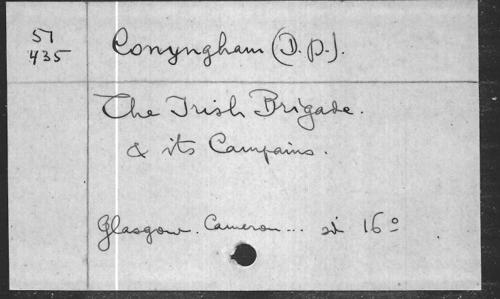 51
435
Conyngham (D. P.).
The Irish Brigade.
& its Campains.
Glasgow. Cameron... sd 16º